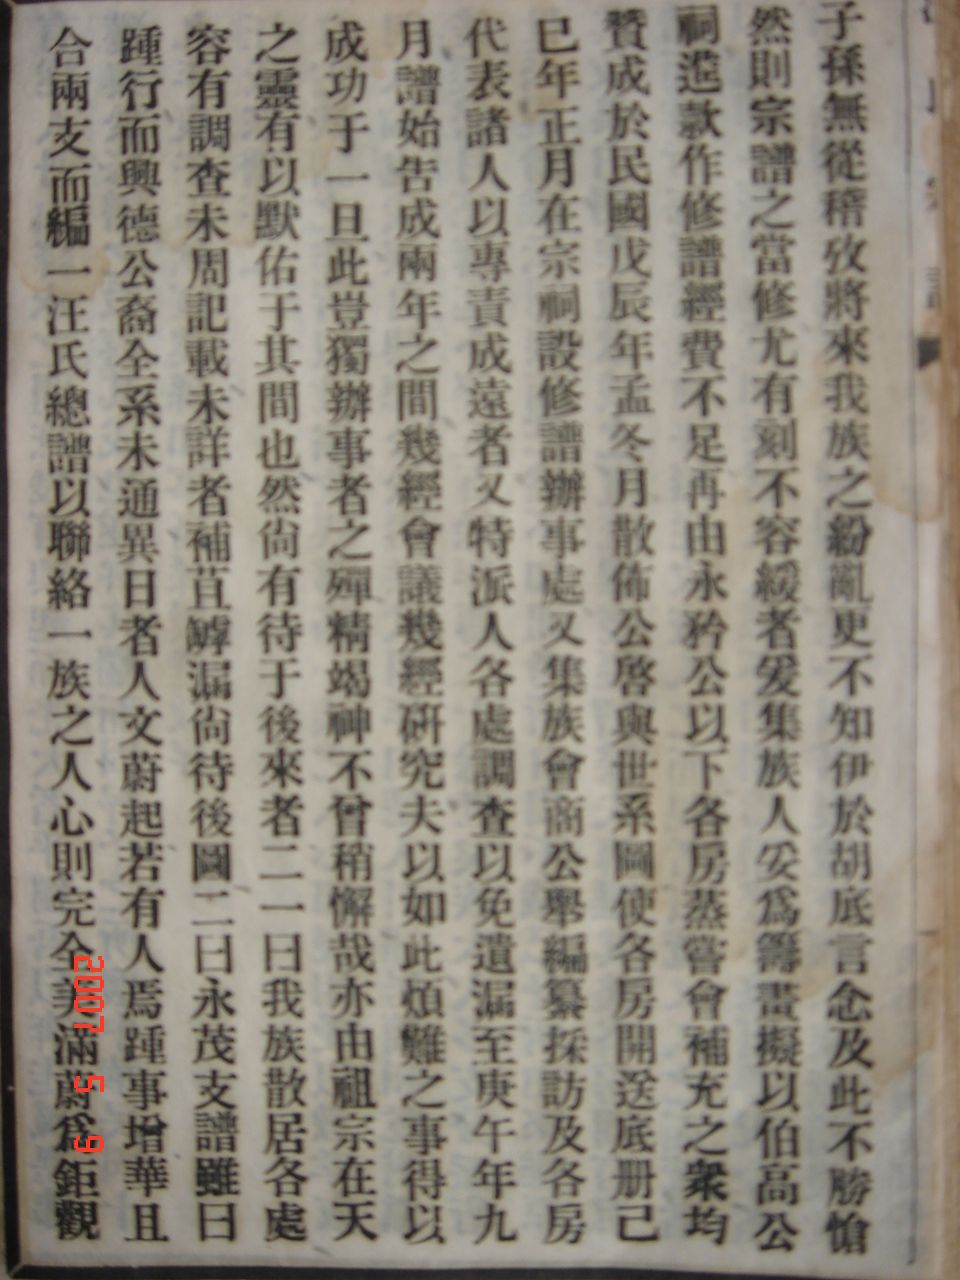 子孫無從稽攷將來我族之紛亂更不知伊於胡底言念及此不勝愴
然則宗譜之當修尤有刻不容緩者爰集族人妥爲籌畫擬以伯高公
祠進款作修譜經費不足再由永矜公以下各房蒸嘗會補充之衆均
贊成於民國戊辰年孟冬月散佈公啓與世系圖使各房開送底册己
巳年正月在宗祠設修譜辦事處又集族會商公舉編纂採訪及各房
代表諸人以專責成遠者又特派人各處調查以免遺漏至庚午年九
月譜始告成兩年之間幾經會議幾經研究夫以如此煩難之事得以
成功于一旦此豈獨辦事者之殫精竭神不曾稍懈哉亦由祖宗在天
之靈有以默佑于其間也然尙有待于後來者二一曰我族散居各處
容有調查未周記載未詳者補苴罅漏尙待後圖二曰永茂支譜雖曰
踵行而興德公裔全系未通異日者人文蔚起若有人焉踵事增華且
合兩支而編一汪氏總譜以聯絡一族之人心則完全美滿蔚爲鉅觀
2007 5 9